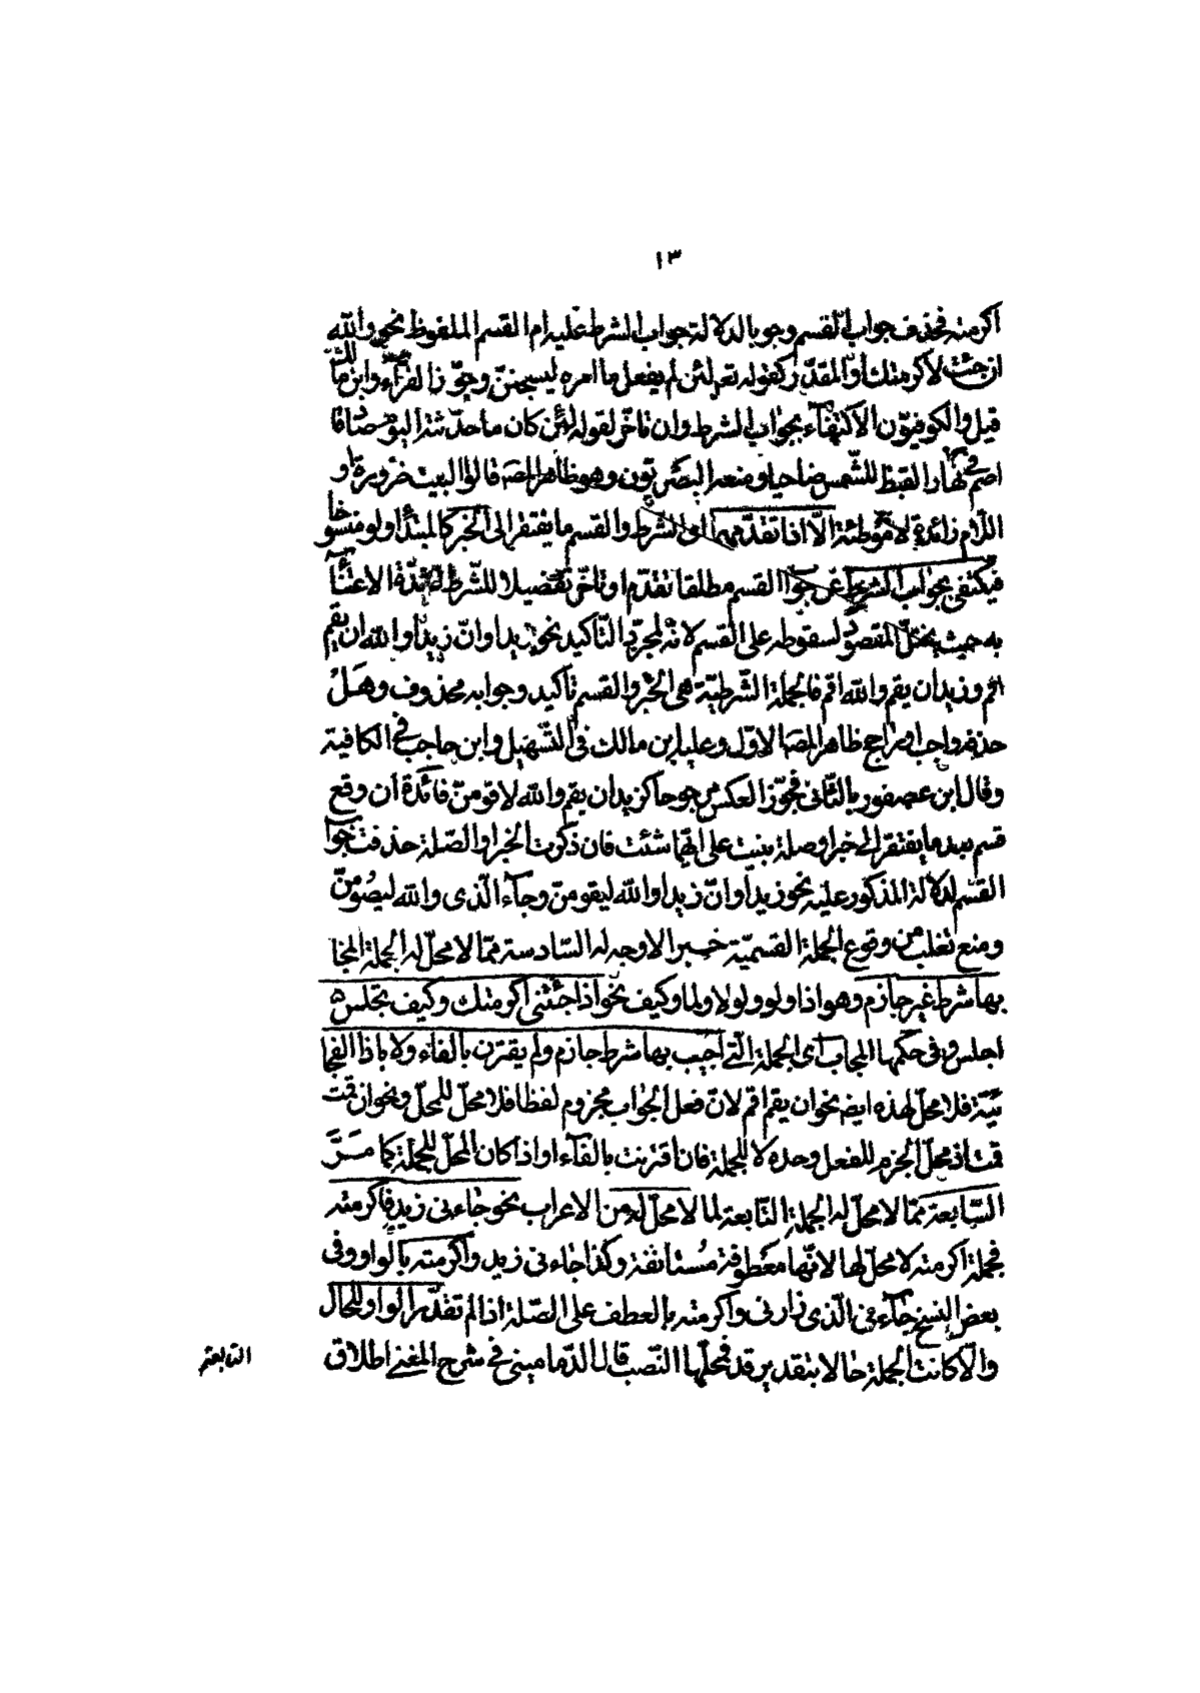 ١٣
اكرمته فحذف جواب القسم وجوبا لدلالة جواب الشرط عليه ام القسم الملفوظ نحو والله
ان جئت لاكرمتك او المقدّر كقوله تعـ لئن لم يفعل ما امره ليسجننّ وجوّز الفرّاء وابن مالك
قيل والكوفيّون الاكتفآء بجواب الشرط وان تاخّر لقوله لئن كان ما حدّثته اليوم صادقا
اصم في نهار القيظ للشّمس ضاحيا ومنعه البَصْريّون وهو ظاهر المصـ قالوا البيت ضرورة او
اللّام زائدة لا موطئة الّا اذا تقدّمهما اى الشرط والقسم ما يفتقر الى الخبر كالمبتدأ ولو منسوخا
فيكتفى بجواب الشرط عن جواب القسم مطلقا تقدّم او تاخّر تفضيلا للشّرط لشدّة الاعتنآء
به حيث يختلّ المقصود لسقوطه على القسم لانّه لمجرّد التّاكيد نحو زيدا وانّ زيدا والله ان يقم
اقم وزيد ان يقم والله اقم فالجملة الشّرطيّة هى الخبر والقسم تاكيد وجوابه محذوف وهَلْ
حذفه واجب او راجح ظاهر المصـ الاوّل وعليه ابن مالك فى التّسهيل وابن حاجب فى الكافية
وقال ابن عصفور بالثّانى فجوّز العكس مرجوحا كزيد ان يقم والله لاقومنّ فائدة ان وقع
قسم بعد ما يفتقر الى خبر او صلة بنيت على ايّهما شئت فان ذكرت الخبر او الصّلة حذفت جواب
القسم لدلالة المذكور عليه نحو زيدا وانّ زيدا والله ليقومنّ وجآء الّذى والله ليصُومنّ
ومنع ثعلب من وقوع الجملة القسميّة خبرا لا وجه له السّادسة ممّا لا محلّ له الجملة المجاب
بها شرط غير جازم وهو اذا ولو ولولا ولما وكيف نحو اذا جئتنى اكرمتك وكيف تجلس
اجلس وفى حكمها المجاب اى الجملة الّتى اجيب بها شرط جازم ولم يقترن بالفاء ولا باذا الفجا
ئيّة فلا محلّ لهذه ايضـ نحو ان يقم اقم لانّ فعل الجواب مجزوم لفظا فلا محلّ للمحلّ ونحو ان قمت
قمت اذ محلّ الجزم للفعل وحده لا للجملة فان اقترنت بالفآء او اذا كان المحلّ للجملة كما مَرَّ
السّابعة ممّا لا محلّ له الجملة التّابعة لما لا محلّ له من الاعراب نحو جاءنى زيد فاكرمته
فجملة اكرمته لا محلّ لها لانّها معطوفة مُستانفة وكذا جاءنى زيد واكرمته بالواو وفى
بعض النسخ جآءنى الّذى زارنى واكرمته بالعطف على الصّلة اذا لم تقدّر الواو للحال
والّا كانت الجملة حالا بتقدير قد فمحلّها النّصب قال الدّمامينى فى شرح المغنى اطلاق
التابعة